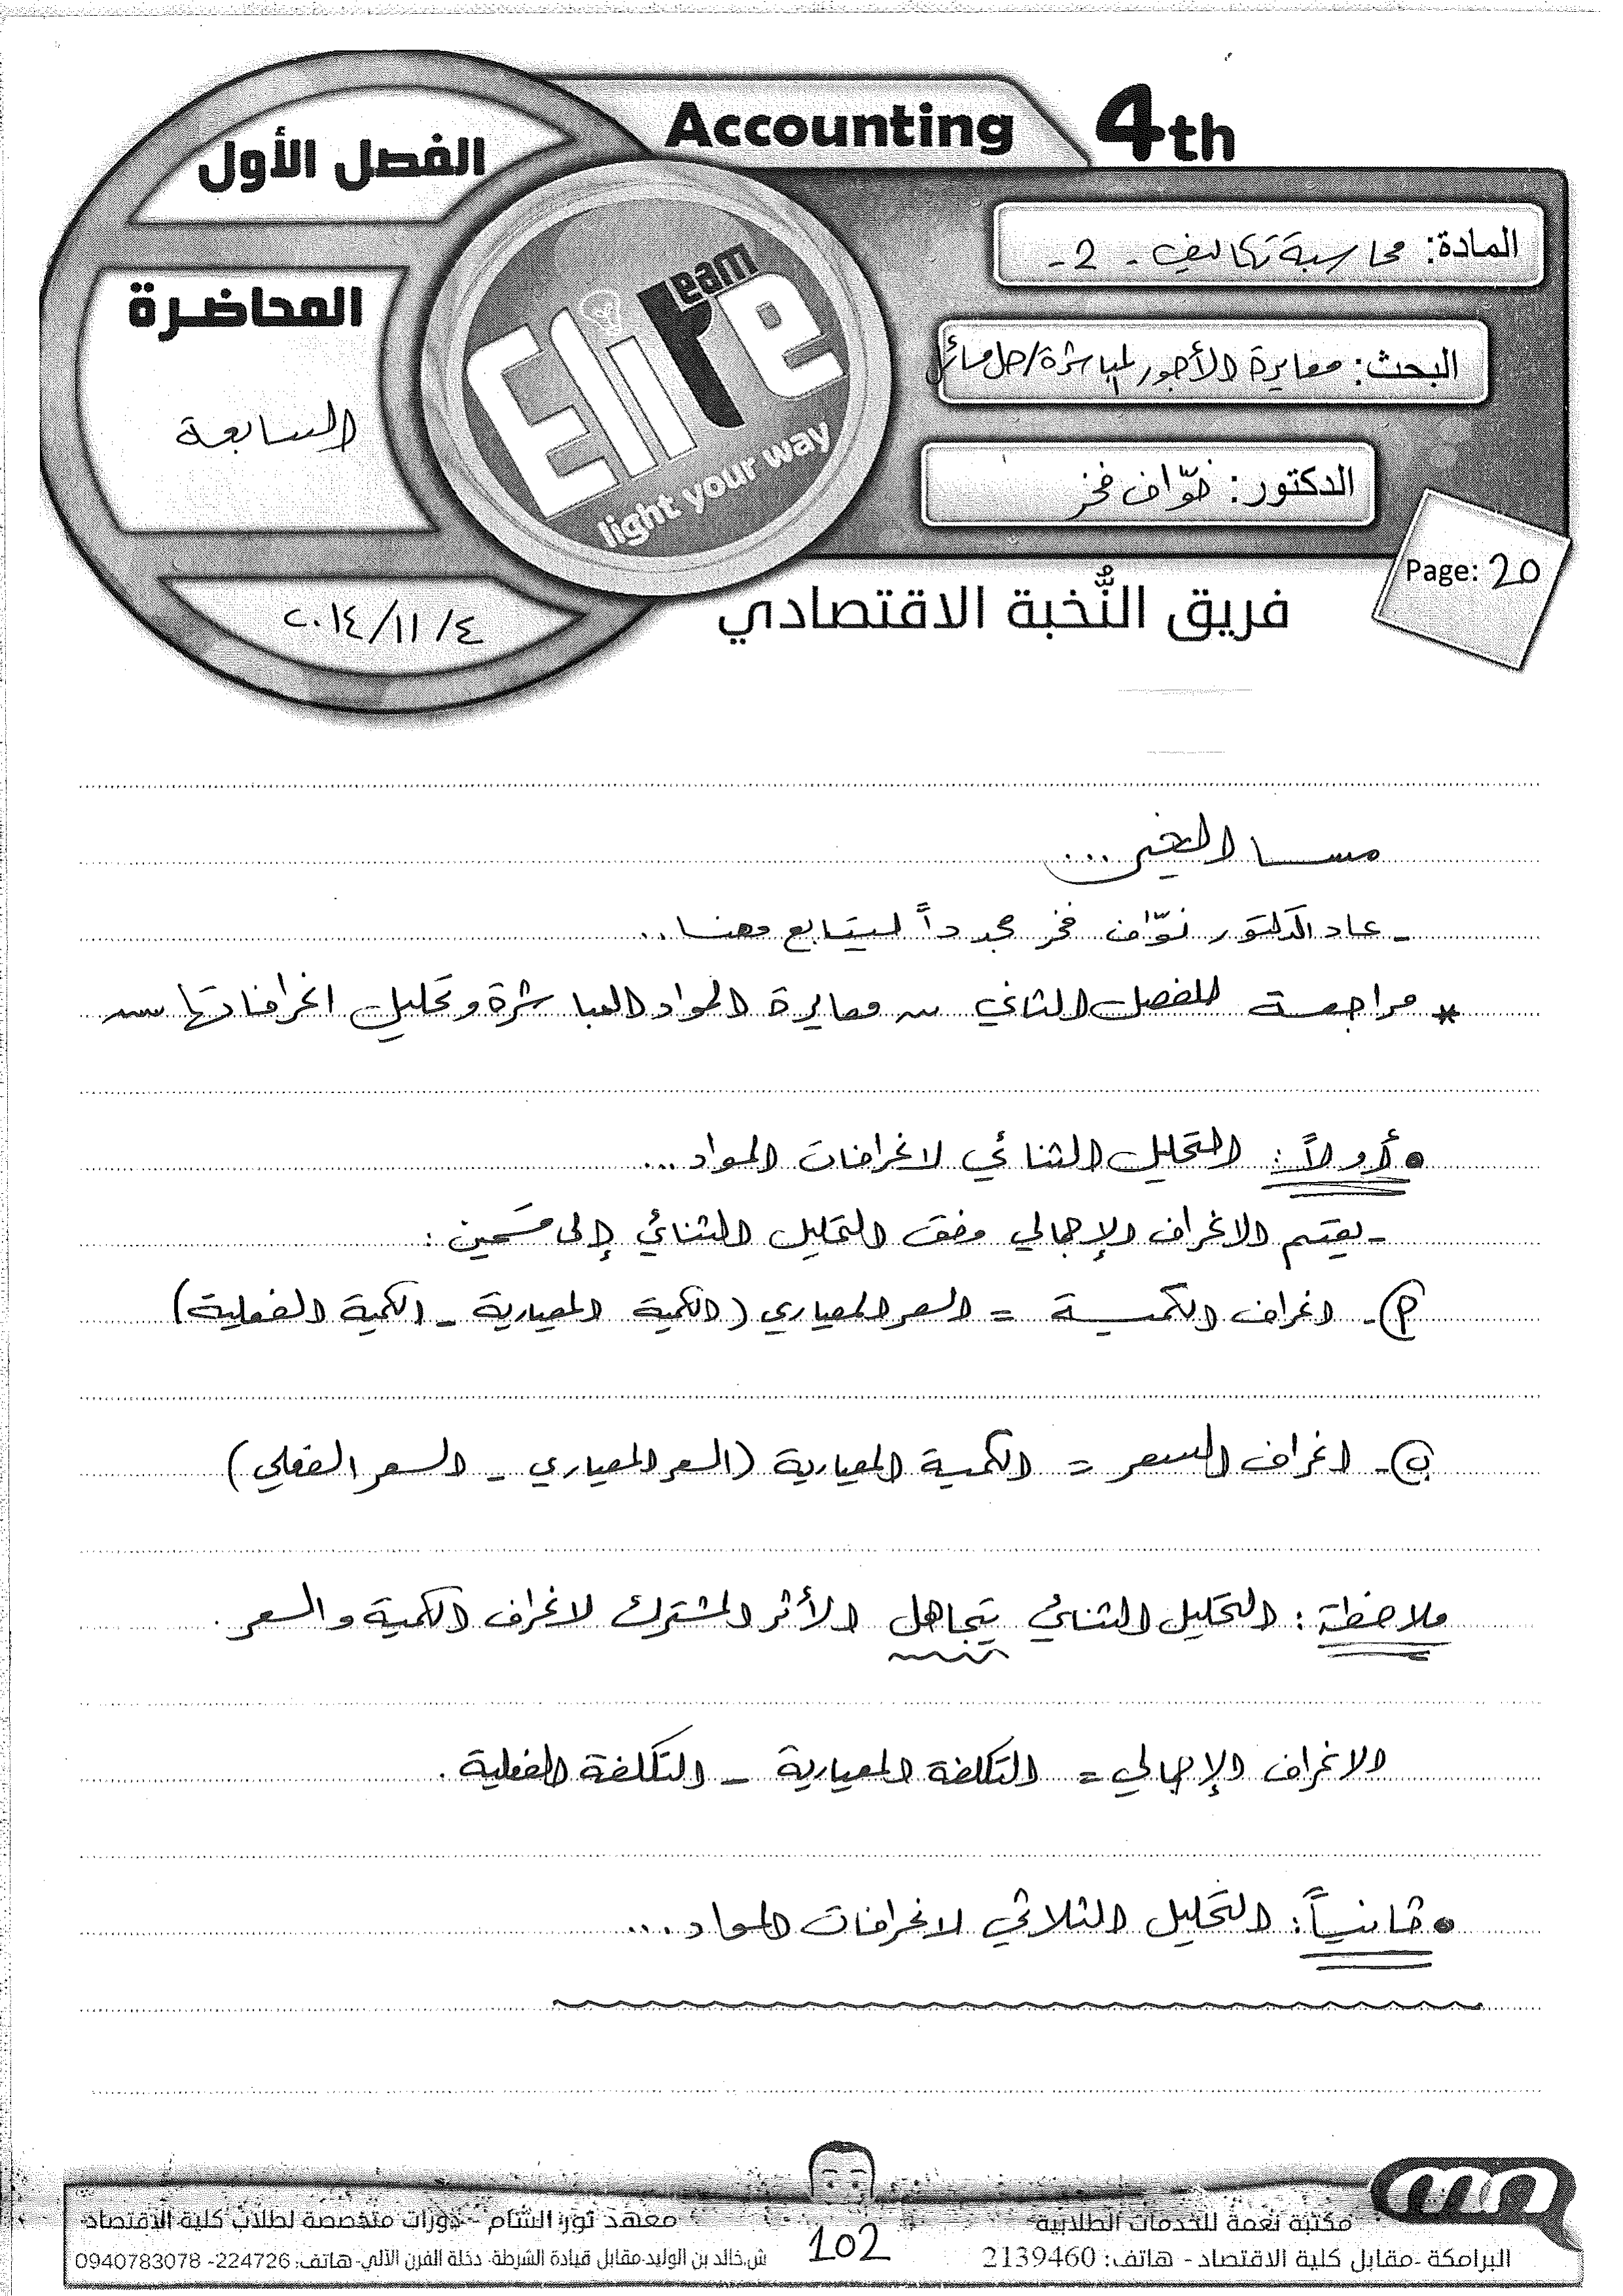 Accounting 4th
الفصل الأول
المادة: محاسبة تكاليف - 2 -
المحاضرة
السابعة
البحث: معايرة الأجور المباشرة/حل مسائل
الدكتور: نوّاف فخر
Elite Team
light your way
Page: 20
٢٠١٤/١١/٤
فريق النُّخبة الاقتصادي
مسا الخير...
- عاد الدكتور نوّاف فخر مجدداً ليتابع معنا..
* مراجعة للفصل الثاني معايرة المواد المباشرة وتحليل انحرافاتها
• أولاً: التحليل الثنائي لانحرافات المواد...
- يقسم الانحراف الإجمالي وفق التحليل الثنائي إلى قسمين:
أ- انحراف الكمية = السعر المعياري (الكمية المعيارية - الكمية الفعلية)
ب- انحراف السعر = الكمية المعيارية (السعر المعياري - السعر الفعلي)
ملاحظة: التحليل الثنائي يتجاهل الأثر المشترك لانحراف الكمية والسعر.
الانحراف الإجمالي = التكلفة المعيارية - التكلفة الفعلية.
• ثانياً: التحليل الثلاثي لانحرافات المواد....
مكتبة نعمة للخدمات الطلابية
معهد نور الشام - دورات متخصصة لطلاب كلية الاقتصاد
البرامكة -مقابل كلية الاقتصاد - هاتف: 2139460
102
ش.خالد بن الوليد-مقابل قيادة الشرطة- دخلة الفرن الآلي-هاتف: 224726- 0940783078